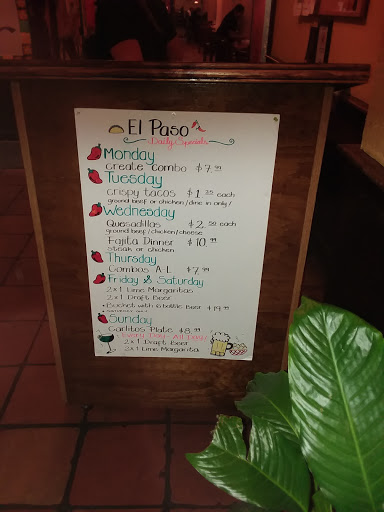 El Paso
Daily Specials
Monday
Create Combo $7.99
Tuesday
Crispy tacos $1.25 each
ground beef or chicken/dine in only/
Wednesday
Quesadillas $2.50 each
ground beef/chicken/cheese
Fajita Dinner $10.99
steak or chicken
Thursday
Combos A-L $7.99
Friday & Saturday
2x1 Lime Margaritas
2x1 Draft Beer
Bucket with 6 bottle Beer $19.99
Sunday
Carlitos Plate $8.99
Every Day - All Day!
2x1 Draft Beer
2x1 Lime Margarita